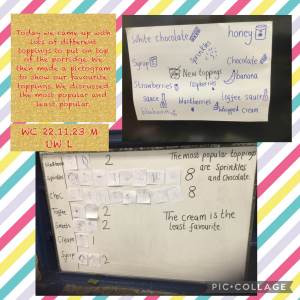 Today we came up with
lots of different
toppings to put on top
of the porridge. We
then made a pictogram
to show our favourite
toppings. We discussed
the most popular and
least popular.
WC 22.11.23 M
UW L
White chocolate
honey
Sprinkles
Syrup
Chocolate
New toppings
banana
Strawberries
raspberries
sauce
toffee sauce
blueberries
blackberries
whipped cream
2
Sprinkles
8
Choc
8
Toffee
2
Sweets
2
Cream
Syrup
2
The most popular toppings
are Sprinkles
and Chocolate.
The cream is the
least favourite.
PIC•COLLAGE